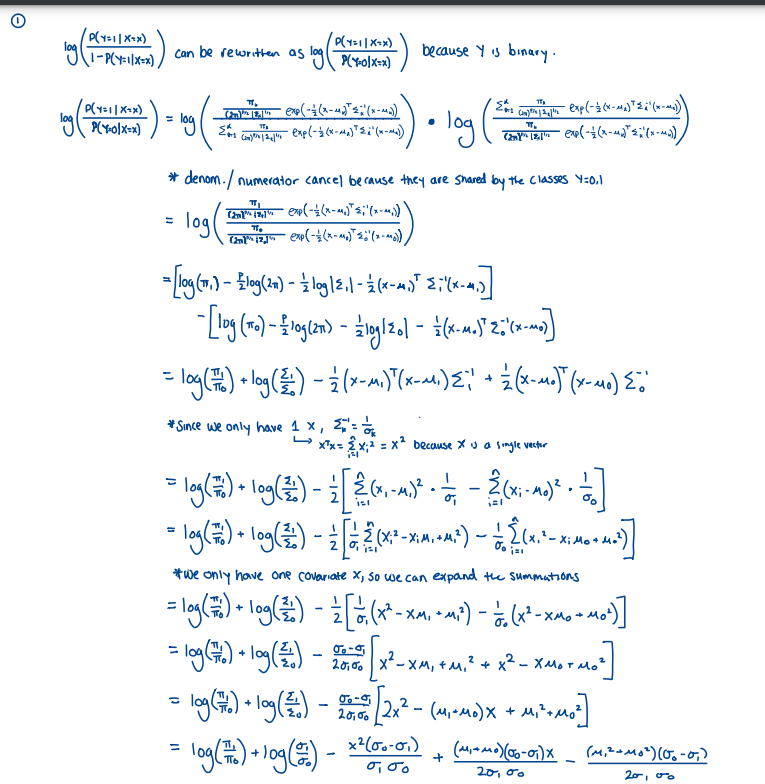 ①
log(P(Y=1|X=x) / 1-P(Y=1|X=x)) can be rewritten as log(P(Y=1|X=x) / P(Y=0|X=x)) because Y is binary.
log(P(Y=1|X=x) / P(Y=0|X=x)) = log( (π₁/((2π)^(p/2)|Σ₁|^(1/2)) exp(-½(x-μ₁)ᵀΣ₁⁻¹(x-μ₁))) / (Σ_{k=1}^{K} π_k/((2π)^(p/2)|Σ_k|^(1/2)) exp(-½(x-μ_k)ᵀΣ_k⁻¹(x-μ_k))) ) · log( (Σ_{k=1}^{K} π_k/((2π)^(p/2)|Σ_k|^(1/2)) exp(-½(x-μ_k)ᵀΣ_k⁻¹(x-μ_k))) / (π₀/((2π)^(p/2)|Σ₀|^(1/2)) exp(-½(x-μ₀)ᵀΣ₀⁻¹(x-μ₀))) )
* denom./numerator cancel because they are shared by the classes Y=0,1
= log( (π₁/((2π)^(p/2)|Σ₁|^(1/2)) exp(-½(x-μ₁)ᵀΣ₁⁻¹(x-μ₁))) / (π₀/((2π)^(p/2)|Σ₀|^(1/2)) exp(-½(x-μ₀)ᵀΣ₀⁻¹(x-μ₀))) )
= [log(π₁) - p/2 log(2π) - ½ log|Σ₁| - ½(x-μ₁)ᵀ Σ₁⁻¹(x-μ₁)]
- [log(π₀) - p/2 log(2π) - ½ log|Σ₀| - ½(x-μ₀)ᵀ Σ₀⁻¹(x-μ₀)]
= log(π₁/π₀) + log(Σ₁/Σ₀) - ½(x-μ₁)ᵀ(x-μ₁)Σ₁⁻¹ + ½(x-μ₀)ᵀ(x-μ₀)Σ₀⁻¹
* Since we only have 1 x, Σ_k⁻¹ = 1/σ_k
↳ xᵀx = Σ_{i=1}^{n} x_i² = x² because x is a single vector
= log(π₁/π₀) + log(Σ₁/Σ₀) - ½[Σ_{i=1}^{n}(x_i-μ₁)² · 1/σ₁ - Σ_{i=1}^{n}(x_i-μ₀)² · 1/σ₀]
= log(π₁/π₀) + log(Σ₁/Σ₀) - ½[1/σ₁ Σ_{i=1}^{n}(x_i² - x_iμ₁ + μ₁²) - 1/σ₀ Σ_{i=1}^{n}(x_i² - x_iμ₀ + μ₀²)]
* we only have one covariate x, so we can expand the summations
= log(π₁/π₀) + log(Σ₁/Σ₀) - ½[1/σ₁(x² - xμ₁ + μ₁²) - 1/σ₀(x² - xμ₀ + μ₀²)]
= log(π₁/π₀) + log(Σ₁/Σ₀) - (σ₀-σ₁)/(2σ₁σ₀) [x² - xμ₁ + μ₁² + x² - xμ₀ + μ₀²]
= log(π₁/π₀) + log(Σ₁/Σ₀) - (σ₀-σ₁)/(2σ₁σ₀) [2x² - (μ₁+μ₀)x + μ₁²+μ₀²]
= log(π₁/π₀) + log(σ₁/σ₀) - x²(σ₀-σ₁)/(σ₁σ₀) + (μ₁+μ₀)(σ₀-σ₁)x/(2σ₁σ₀) - (μ₁²+μ₀²)(σ₀-σ₁)/(2σ₁σ₀)